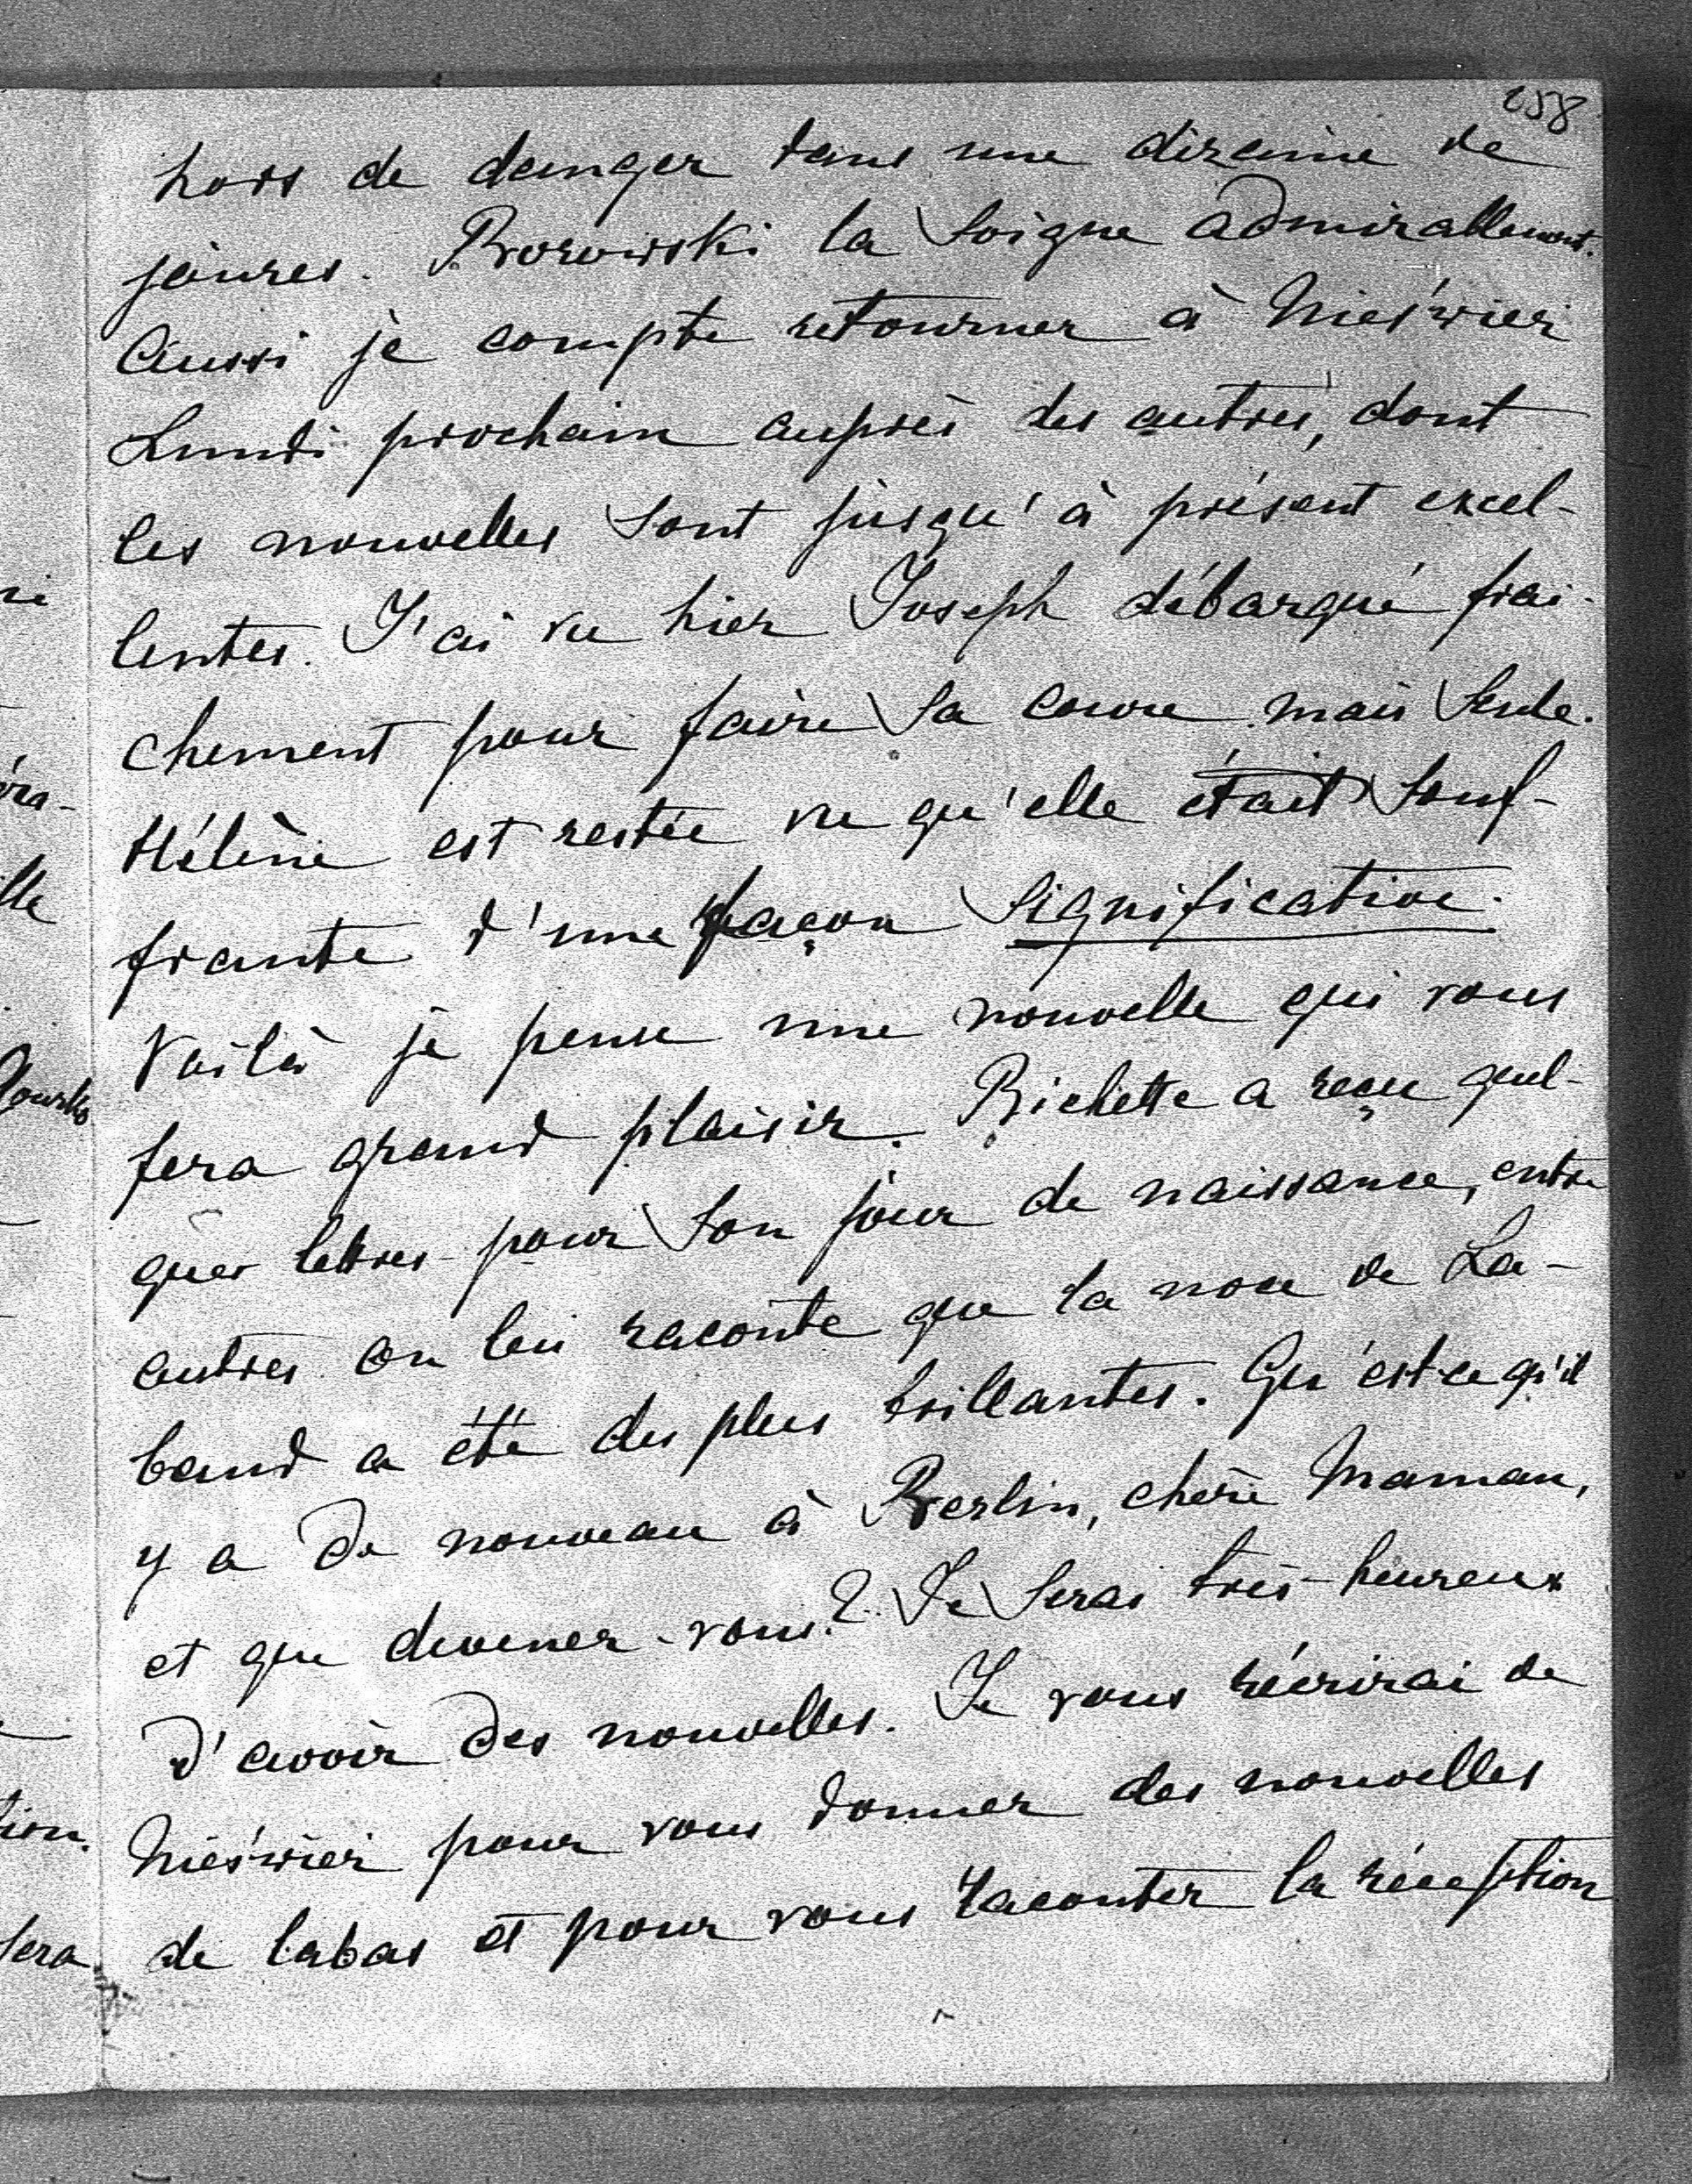 258
hors de danger dans une dizaine de
jours. Borowski la soigne admirablement.
Aussi je compte retourner à Nieśwież
Lundi prochain auprès des autres, dont
les nouvelles sont jusqu'à présent excel-
lentes. J'ai vu hier Joseph débarqué frai-
chement pour faire sa couvée mais seule.
Hélène est restée vu qu'elle était souf-
frante d'une façon significative.
Voilà je pense une nouvelle qui vous
fera grand plaisir. Bichette a reçu quel-
ques lettres pour son jour de naissance, entre
autres on lui raconte que la noce de La-
band a été des plus brillantes. Qu'est-ce qu'il
y a de nouveau à Berlin, chère Maman,
et que devenez-vous? Je serai très-heureux
d'avoir des nouvelles. Je vous récrirai de
Nieśwież pour vous donner des nouvelles
de labas et pour vous raconter la réception